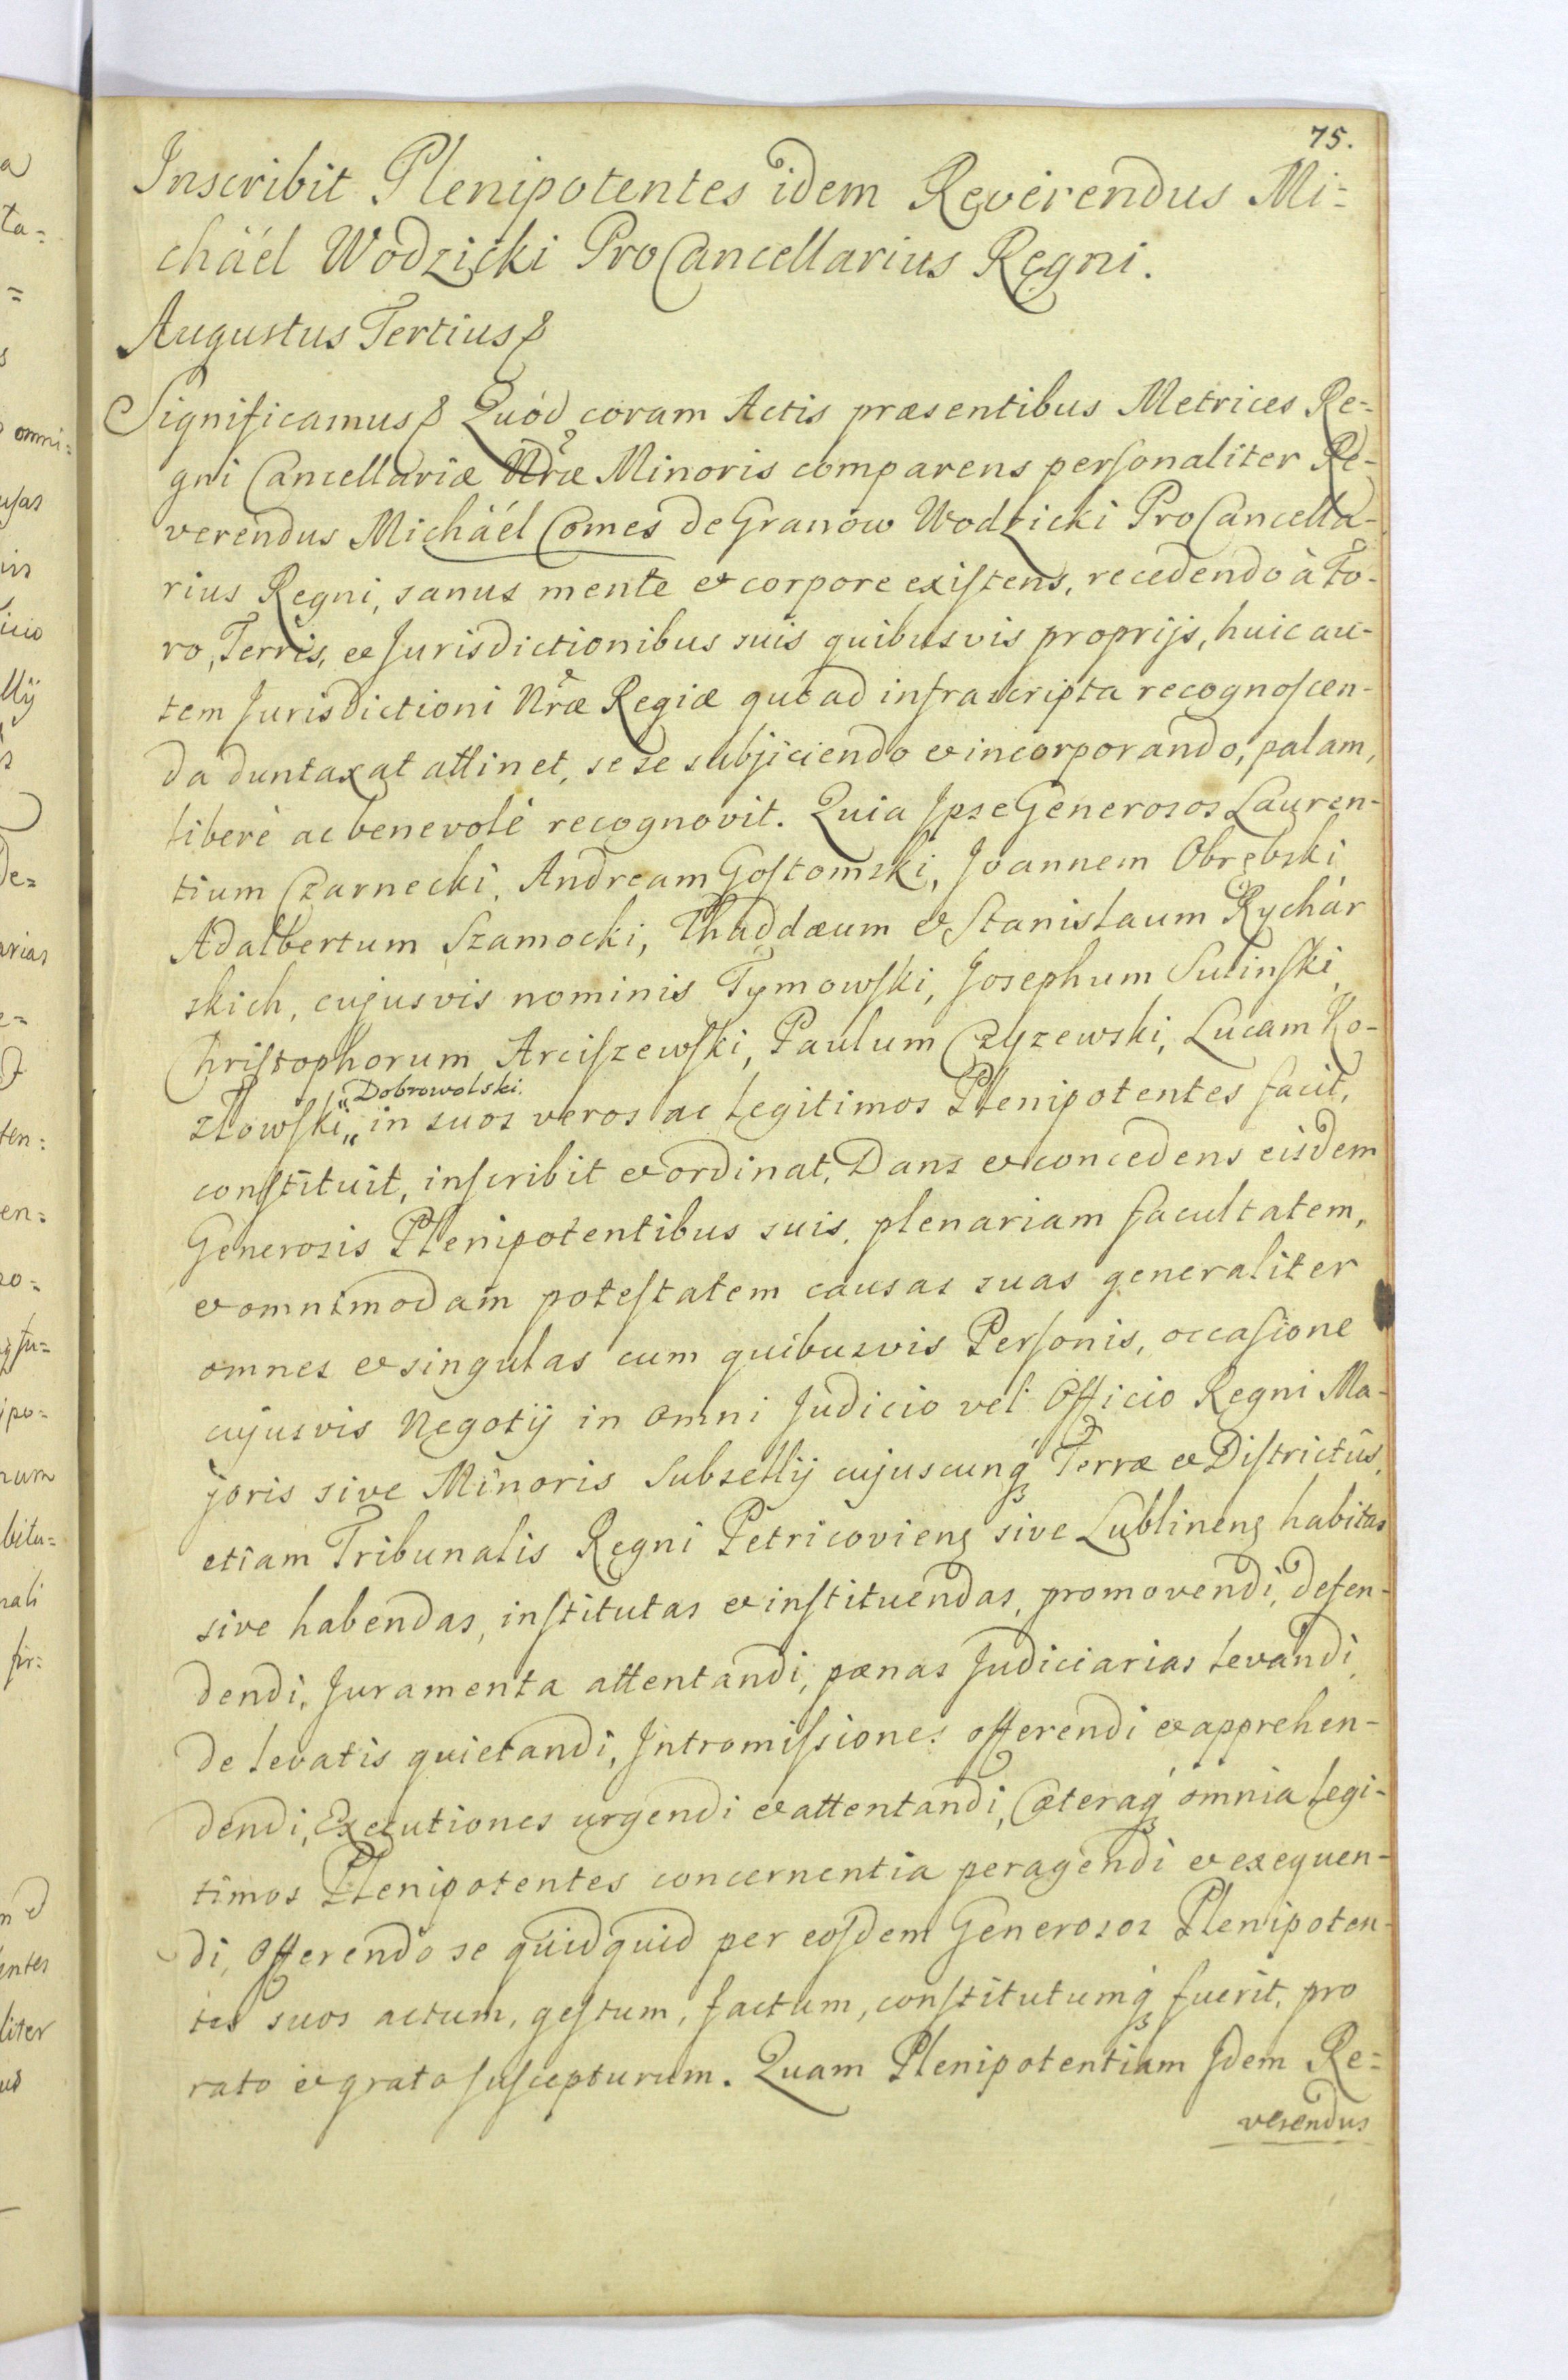 75.
Inscribit Plenipotentes idem Reverendus Mi=
chäél Wodzicki ProCancellarius Regni.
Augustus Tertius
Significamus Quód coram Actis præsentibus Metrices Re-
gni Cancellariæ Nr̃æ Minoris comparens personaliter Re-
verendus Michäél Comes de Granów Wodzicki ProCancella-
rius Regni, sanus mente et corpore existens, recedendo à Fo-
ro, Terris, et Jurisdictionibus suis quibusvis proprijs, huic au-
tem Jurisdictioni Nr̃æ Regiæ quo ad infrascripta recognoscen-
da duntaxat attinet, se se subjiciendo et incorporando, palam,
liberè ac benevolè recognovit. Quia Ipse Generosos Lauren-
tium Czarnecki, Andream Gostomski, Joannem Obrębski,
Adalbertum Szamocki, Thaddæum et Stanislaum Rychár
skich, cujusvis nominis Tymowski, Josephum Sulinski,
Christophorum Arciszewski, Paulum Czyzewski, Lucam Ko-
" Dobrowolski.
złowski „ in suos veros ac legitimos Plenipotentes facit,
constituit, inscribit et ordinat, Dans et concedens eisdem
Generosis Plenipotentibus suis, plenariam facultatem,
et omnimodam potestatem causas suas generaliter
omnes et singulas cum quibusvis Personis, occasione
cujusvis Negotij in omni Judicio vel Officio Regni Ma-
joris sive Minoris Subsellij cujuscunq́ꝫ Terræ et Districtûs,
etiam Tribunalis Regni Petricovienȿ sive Lublinenȿ habitas
sive habendas, institutas et instituendas, promovendi, defen-
dendi, Juramenta attentandi, pænas Judiciarias levandi,
de levatis quietandi, Intromissiones offerendi et apprehen-
dendi, Executiones urgendi et attentandi, Cæteraq́ꝫ omnia legi-
timos Plenipotentes concernentia peragendi et exequen-
di, Offerendo se quidquid per eosdem Generosos Plenipoten-
tes suos actum, gestum, factum, constitutumq́ꝫ fuerit, pro
rato et grato suscepturum. Quam Plenipotentiam Idem Re=
verendus